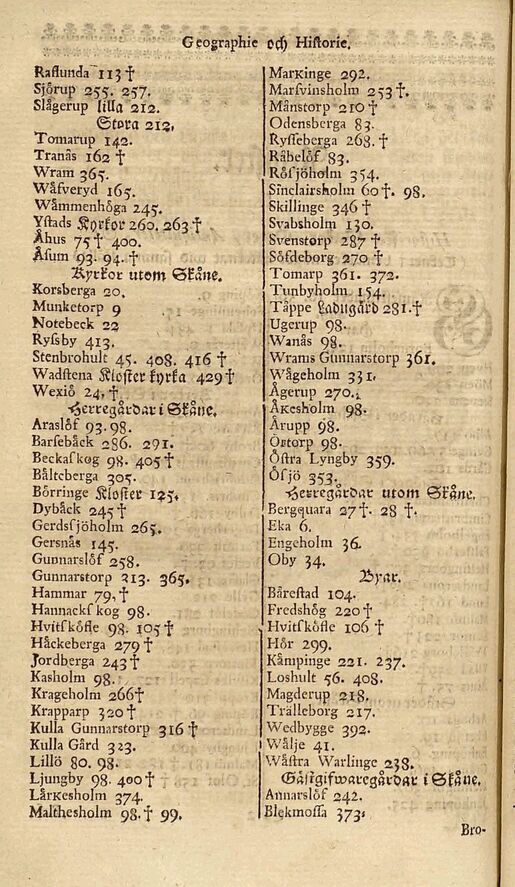 Geographie och Historie.
Raflunda 113 †
Sjörup 255. 257.
Slågerup lilla 212.
Stora 212,
Tomarup 142.
Tranås 162 †
Wram 365.
Wåfveryd 165.
Wåmmenhöga 245.
Ystads Kyrkor 260. 263 †
Åhus 75 † 400.
Åsum 93. 94. †
Kyrkor utom Skåne.
Korsberga 20.
Munketorp 9
Notebeck 22
Rysſby 413.
Stenbrohult 45. 408. 416 †
Wadstena Kloster kyrka 429 †
Wexiö 24, †
Herregårdar i Skåne.
Araslöf 93. 98.
Barſebäck 286. 291.
Beckaſkog 98. 405 †
Bålteberga 305.
Börringe Kloster 125.
Dybäck 245 †
Gerdsſjöholm 265.
Gersnäs 145.
Gunnarslöf 258.
Gunnarstorp 313. 365.
Hammar 79, †
Hannackſkog 98.
Hvitſköfle 98. 105 †
Håckeberga 279 †
Jordberga 243 †
Kasholm 98.
Krageholm 266 †
Krapparp 320 †
Kulla Gunnarstorp 316 †
Kulla Gård 323.
Lillö 80. 98.
Ljungby 98. 400 †
Lårkesholm 374.
Malthesholm 98. † 99.
Markinge 292.
Marſvinsholm 253 †.
Månstorp 210 †
Odensberga 83.
Rysſeberga 268. †
Råbelöf 83.
Röſjöholm 354.
Sinclairsholm 60 †. 98.
Skillinge 346 †
Svabsholm 130.
Svenstorp 287 †
Söfdeborg 270 †
Tomarp 361. 372.
Tunbyholm 154.
Tåppe Ladugård 281. †
Ugerup 98.
Wanås 98.
Wrams Gunnarstorp 361.
Wågeholm 331.
Ågerup 270.
Åkesholm 98.
Årupp 98.
Örtorp 98.
Östra Lyngby 359.
Öſjö 353.
Herregårdar utom Skåne.
Bergquara 27 †. 28 †.
Eka 6.
Engeholm 36.
Oby 34.
Byar.
Bårestad 104.
Fredshög 220 †
Hvitſköfle 106 †
Hör 299.
Kåmpinge 221. 237.
Loshult 56. 408.
Magderup 218.
Trålleborg 217.
Wedbygge 392.
Wålje 41.
Wåstra Warlinge 238.
Gåstgifwaregårdar i Skåne.
Annarslöf 242.
Blekmosſa 373.
Bro-